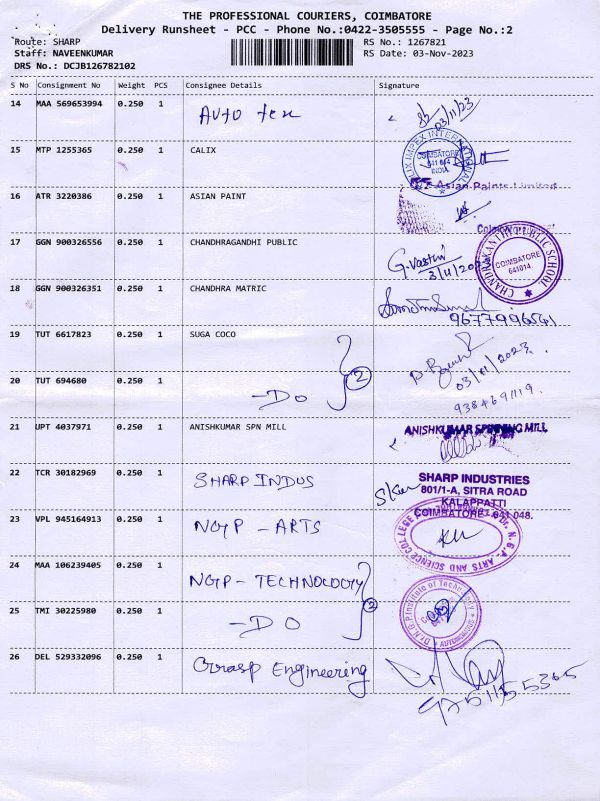 THE PROFESSIONAL COURIERS, COIMBATORE
Delivery Runsheet - PCC - Phone No.:0422-3505555 - Page No.:2
Route: SHARP
Staff: NAVEENKUMAR
DRS No.: DCJB126782102
RS No.: 1267821
RS Date: 03-Nov-2023
S No Consignment No Weight PCS Consignee Details Signature
14 MAA 569653994 0.250 1 Auto tex 03/11/23
15 MTP 1255365 0.250 1 CALIX
LUX IMPEX INTERNATIONAL COIMBATORE 641 014 INDIA
Asian Paints Limited
16 ATR 3220386 0.250 1 ASIAN PAINT
17 GGN 900326556 0.250 1 CHANDHRAGANDHI PUBLIC G. Vastini 3/11/2023
CHANDRAKANTHI PUBLIC SCHOOL COIMBATORE 641014
18 GGN 900326351 0.250 1 CHANDHRA MATRIC
9677996541
19 TUT 6617823 0.250 1 SUGA COCO
03/11/2023.
20 TUT 694680 0.250 1 -DO 2
21 UPT 4037971 0.250 1 ANISHKUMAR SPN MILL ANISHKUMAR SPINNING MILL
22 TCR 30182969 0.250 1 SHARP INDUS
SHARP INDUSTRIES
801/1-A, SITRA ROAD
KALAPPATTI
COIMBATORE - 641 048.
23 VPL 945164913 0.250 1 NGP - ARTS
Dr. N.G.P. ARTS AND SCIENCE COLLEGE
24 MAA 106239405 0.250 1 NGP - TECHNOLOGY 2
Dr. N.G.P Institute of Technology AUTONOMOUS
25 TMI 30225980 0.250 1 -DO
26 DEL 529332096 0.250 1 Grasp Engineering
9751155365